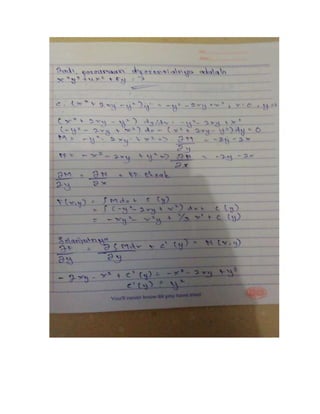 Jadi, persamaan diferensialnya adalah
c. (x² + 2xy - y²) y' = -y² - 2xy + x²
(x² + 2xy - y²) dy/dx = -y² - 2xy + x²
(-y² - 2xy + x²) dx - (x² + 2xy - y²) dy = 0
M = -y² - 2xy + x² => ∂M/∂y = -2y - 2x
N = -x² - 2xy + y² => ∂N/∂x = -2y - 2x
∂M/∂y = ∂N/∂x = PD Eksak
F(x,y) = ∫ M dx + C (y)
= ∫ (-y² - 2xy + x²) dx + C (y)
= -xy² - x²y + 1/3 x³ + C (y)
Selanjutnya
∂F/∂y = ∂ ∫ M dx/∂y + C' (y) = N (x,y)
-2xy - x² + C' (y) = -x² - 2xy + y²
C' (y) = y²
You'll never know till you have tried